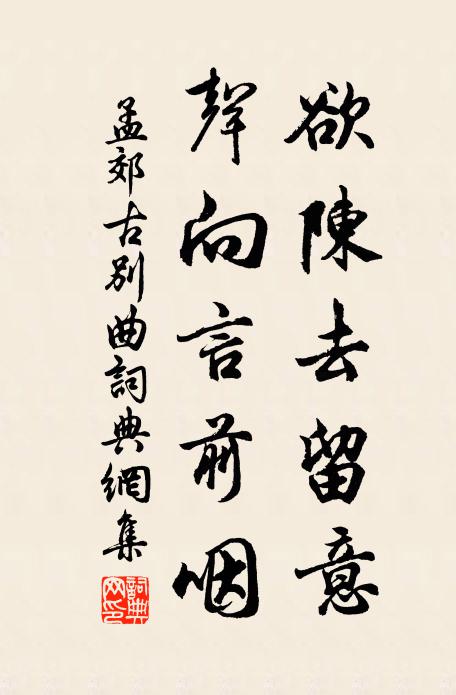 欲陳去留意
聲向言前咽
孟郊古別曲詞典網集
詞典网印